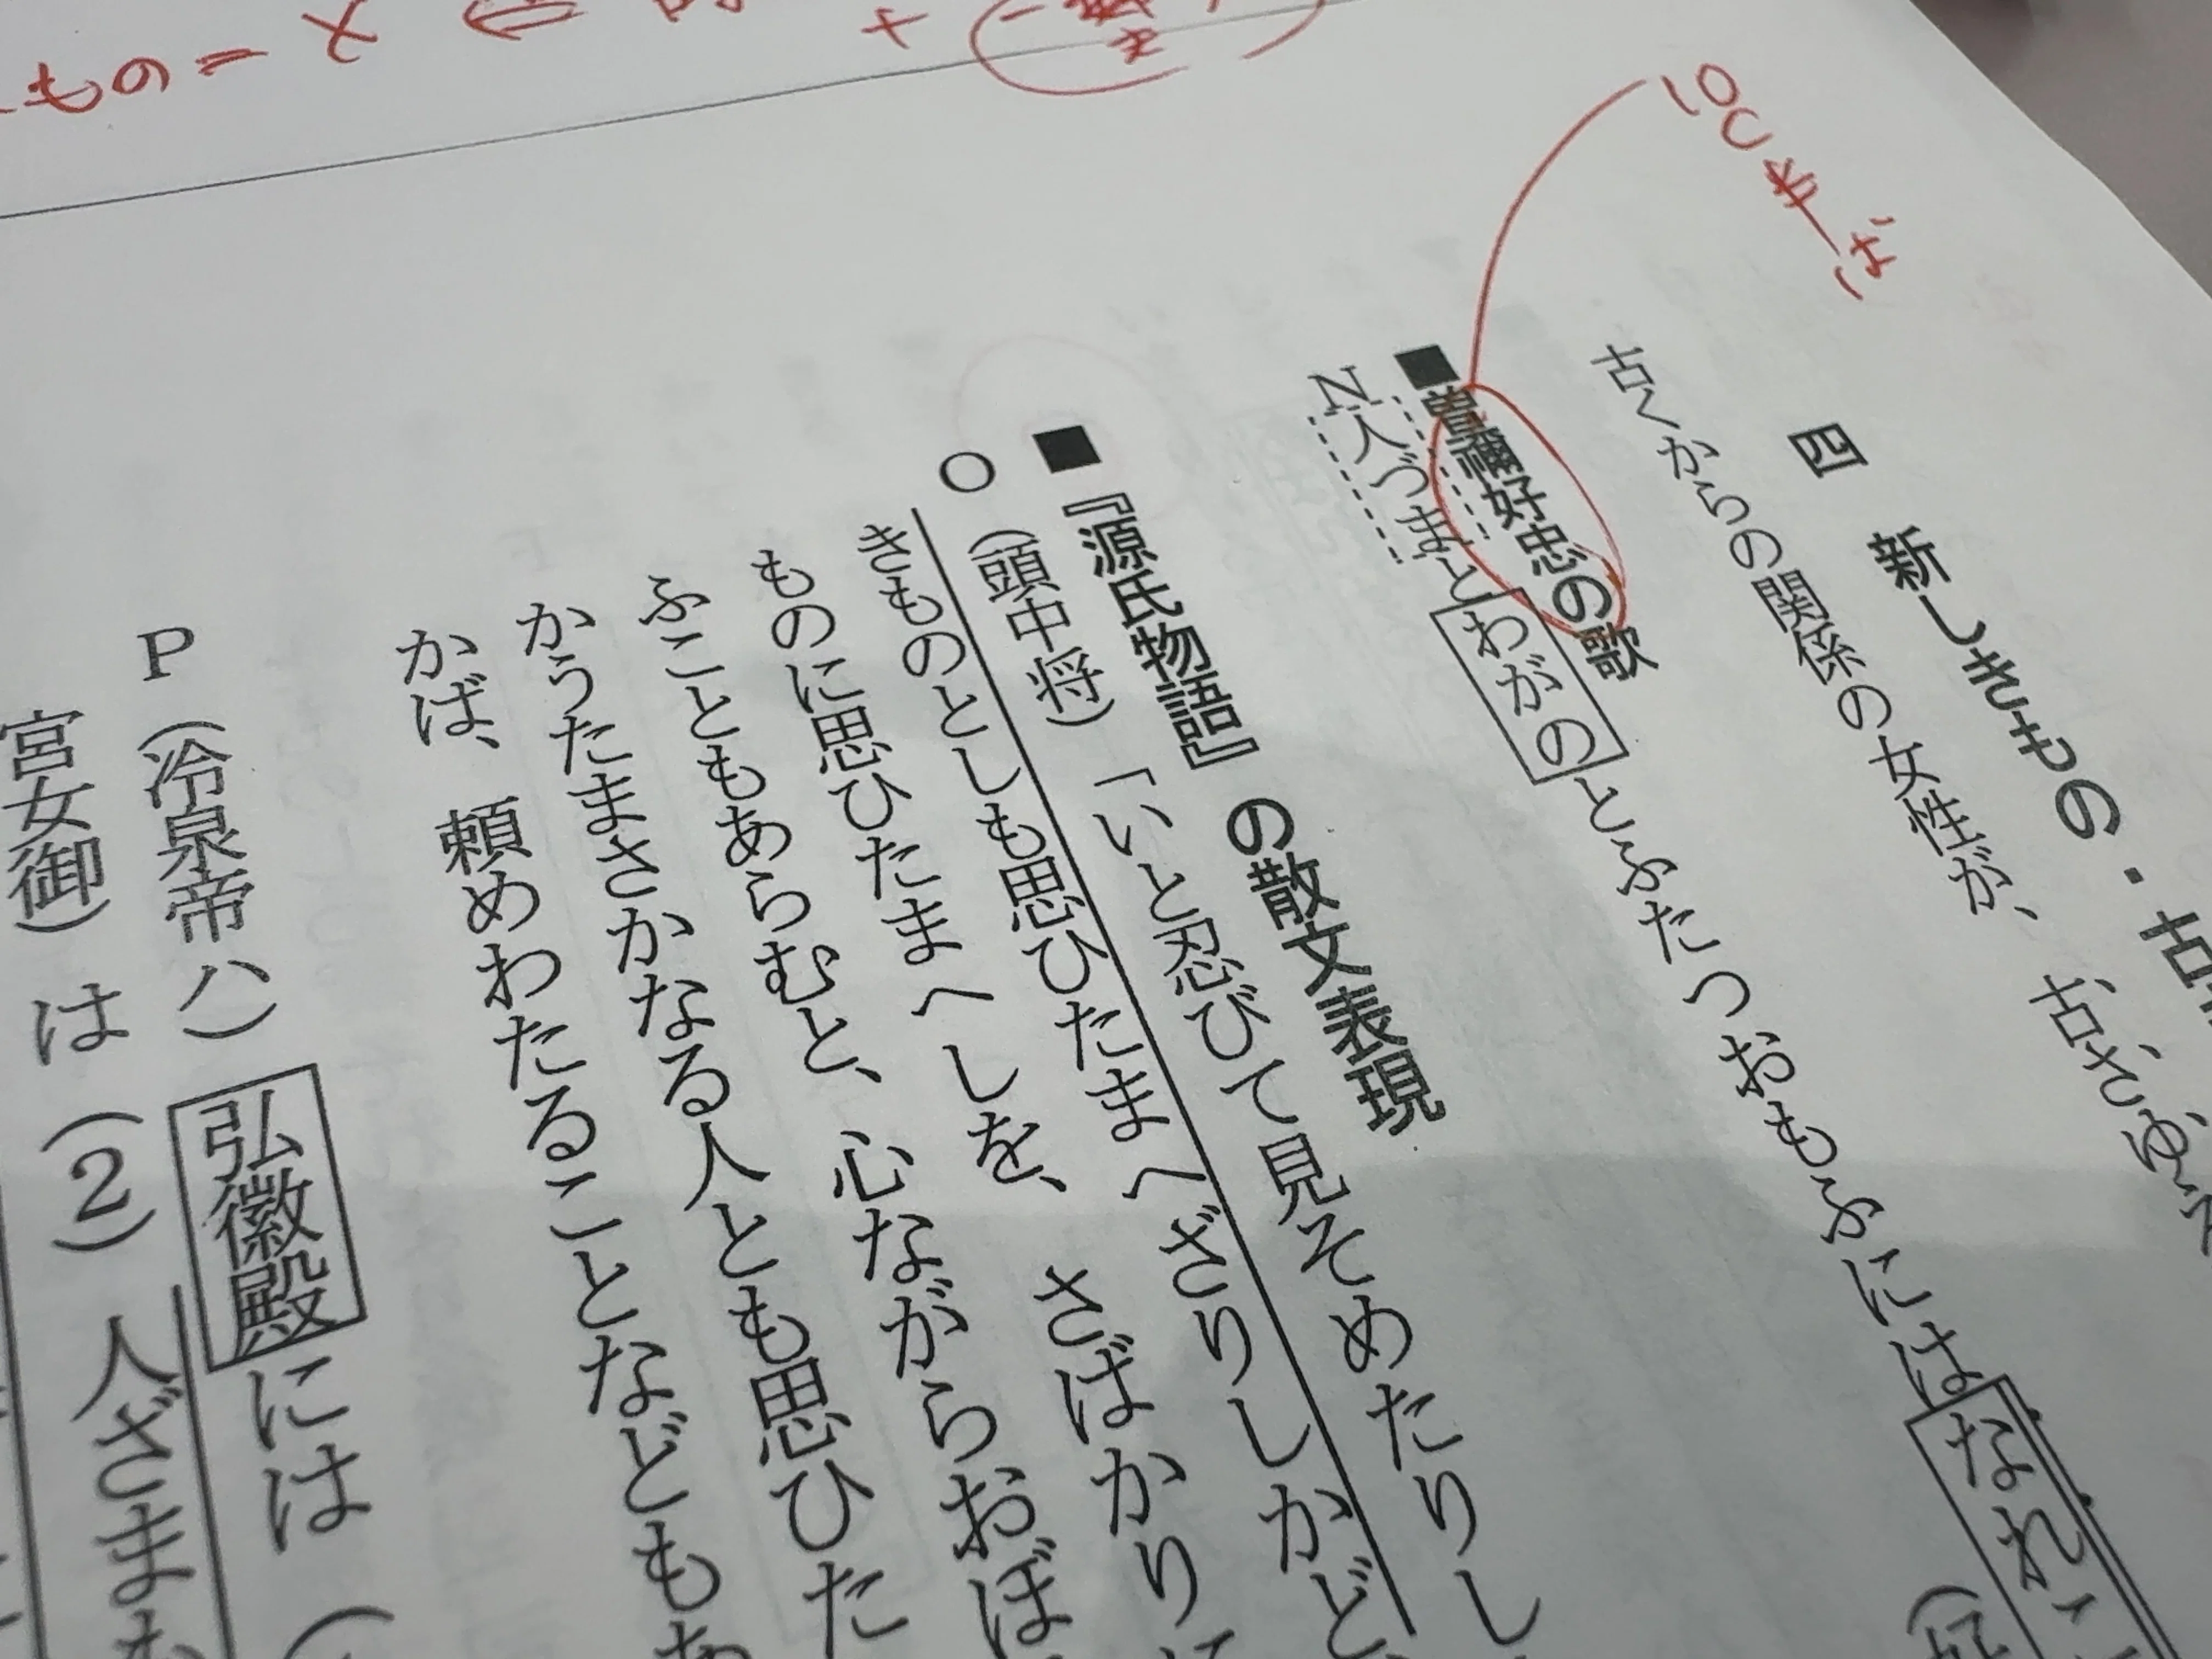 もの＝
10C半ば
四　新しきもの・古
古くからの関係の女性が、古さゆえ
■曽禰好忠の歌
N 人づまとわがのとふたつおもふにはなれこ
■『源氏物語』の散文表現
O（頭中将）「いと忍びて見そめたりし
きものとしも思ひたまへざりしかど、
ものに思ひたまへしを、さばかりに
ふこともあらむと、心ながらおぼ
かうたまさかなる人とも思ひた
かば、頼めわたることなどもあ
P（冷泉帝ハ）弘徽殿には（
宮女御）は（2）人ざまも